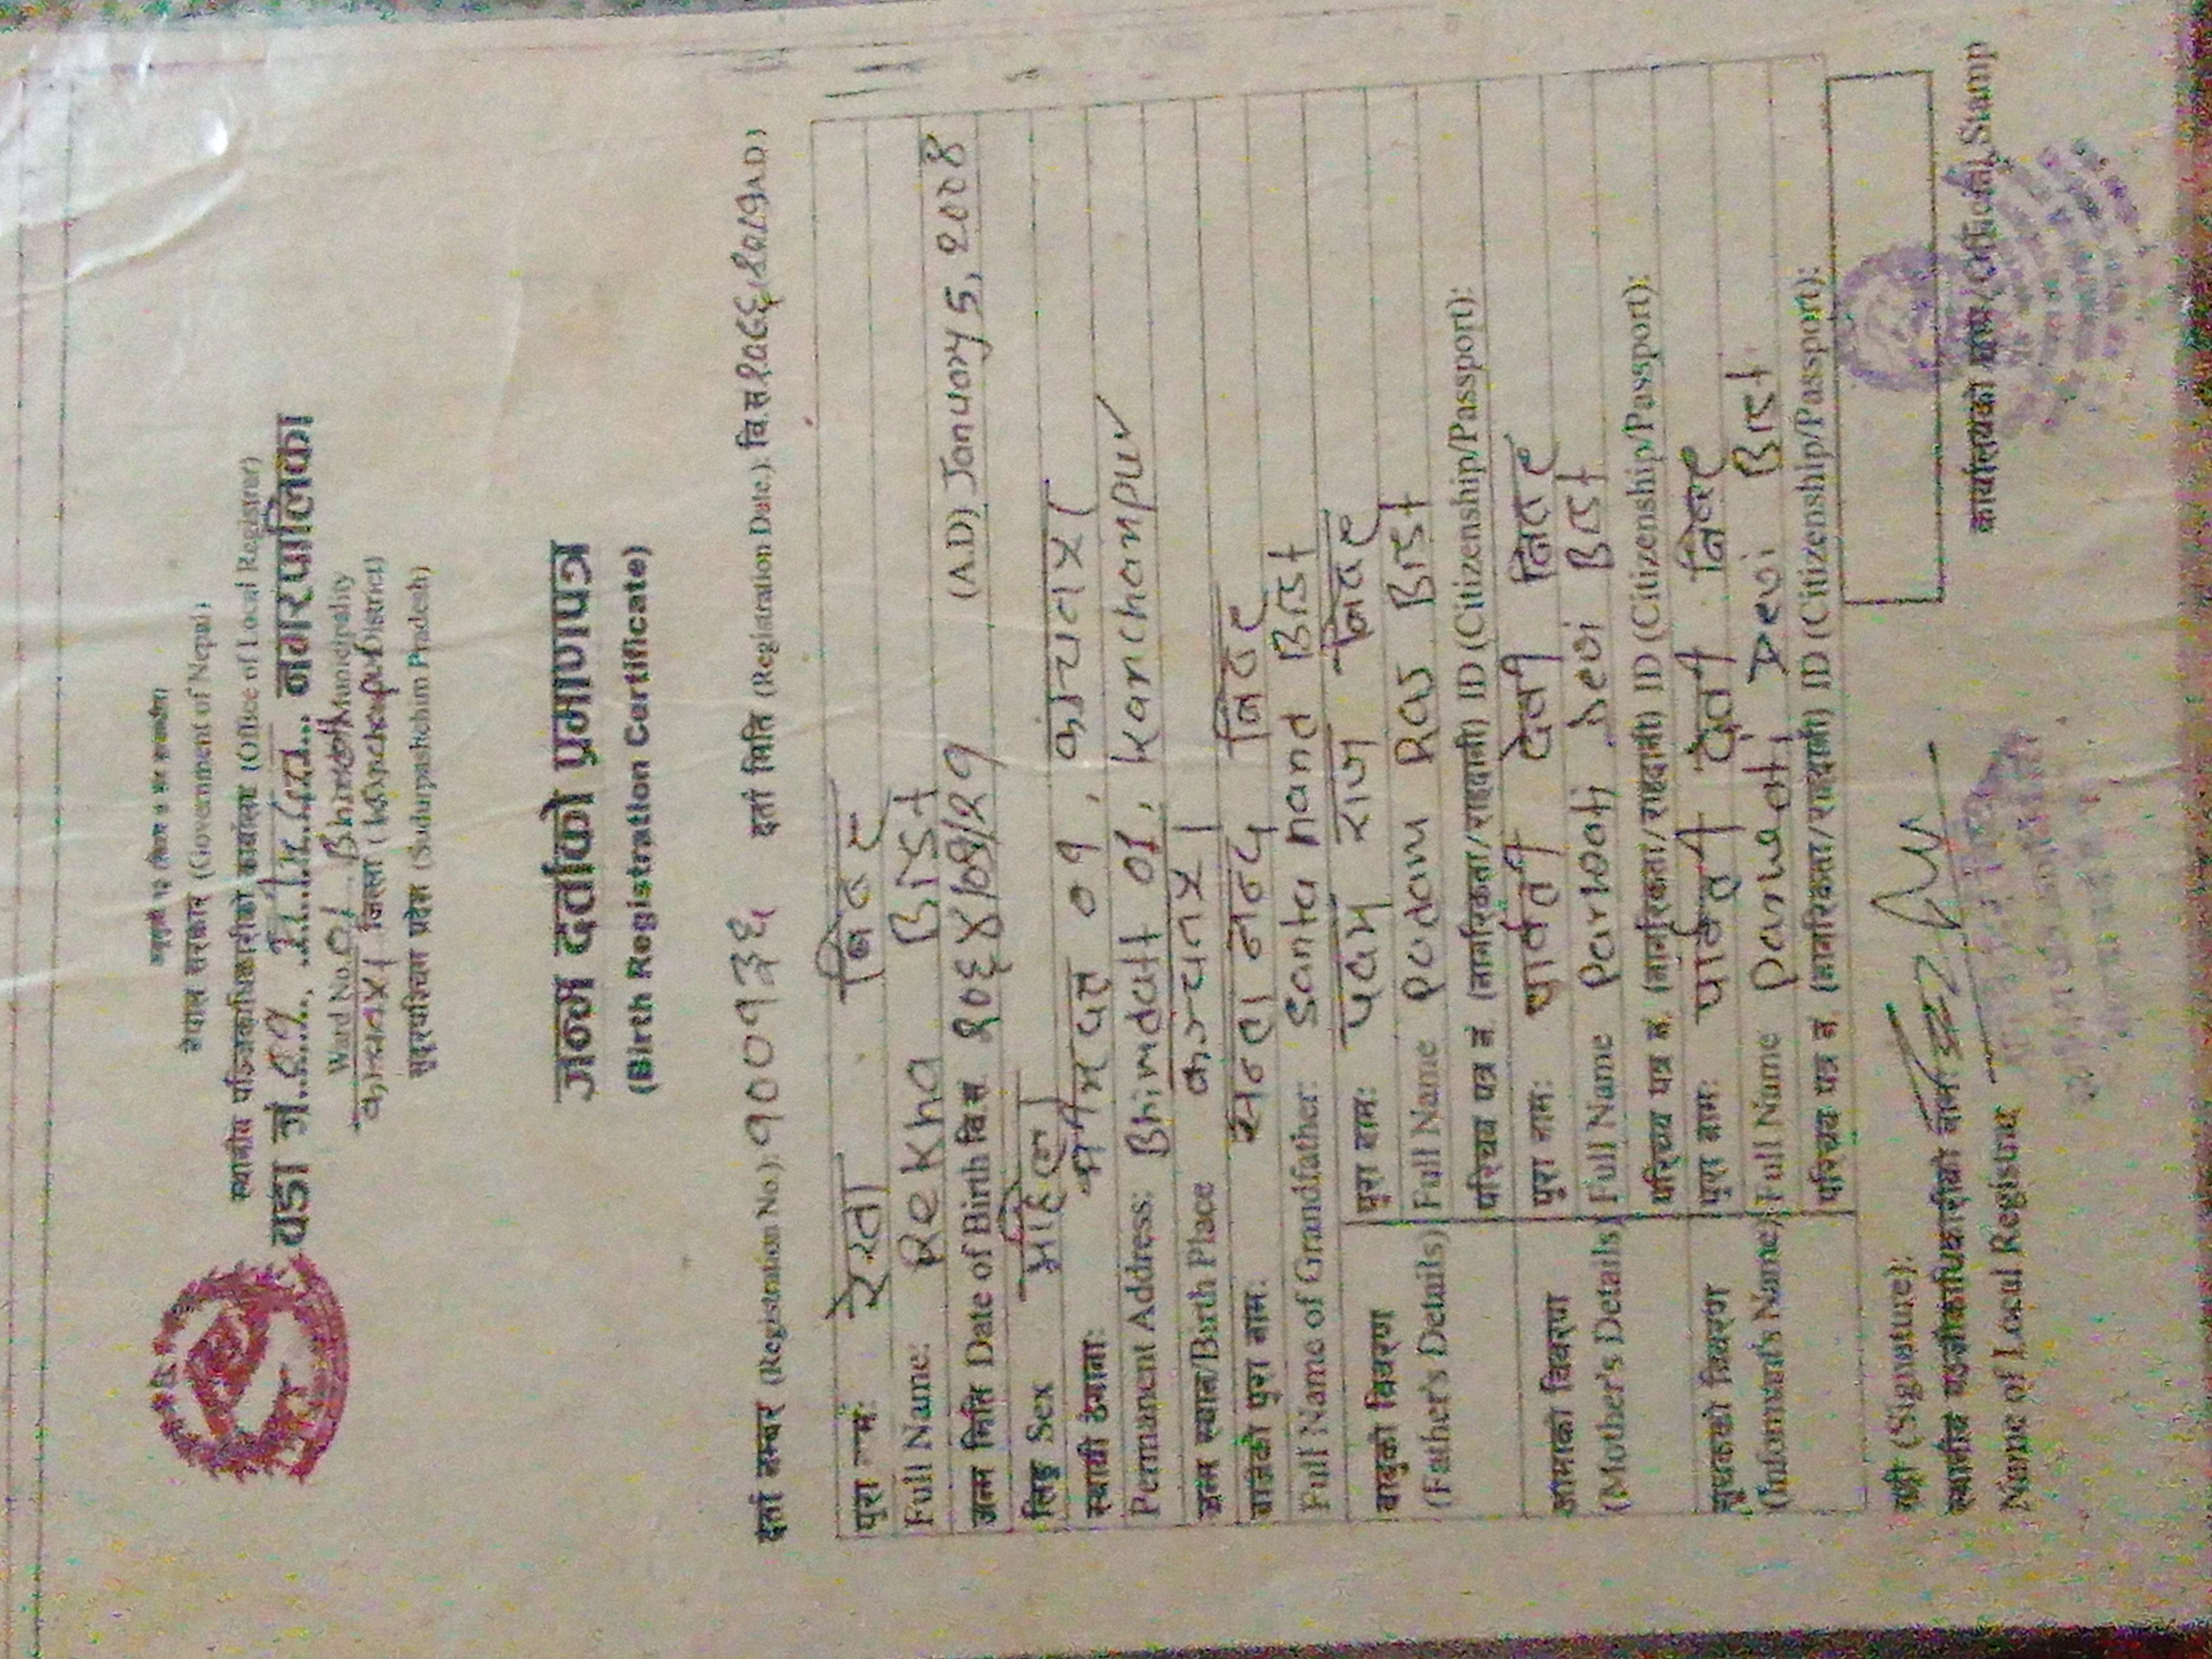 अनुसूची १२
नेपाल सरकार (Government of Nepal)
स्थानीय पञ्जिकाधिकारीको कार्यालय (Office of Local Registrer)
वडा नं. ०१, नगरपालिका
Ward No. 01 Municipality
जिल्ला (Kanchanpur District)
सुदूरपश्चिम प्रदेश (Sudurpashchim Pradesh)
जन्म दर्ताको प्रमाणपत्र
(Birth Registration Certificate)
दर्ता नम्बर (Registration No.): दर्ता मिति (Registration Date.): वि.सं. A.D)
पुरा नाम: रेखा बिष्ट
Full Name: Rekha Bist
जन्म मिति Date of Birth वि.सं. २०६४/०९/२१ (A.D) January 5, 2008
लिङ्ग Sex महिला
स्थायी ठेगाना: भीमदत्त ०१, कञ्चनपुर
Permanent Address: Bhimdatt 01, kanchanpur
जन्म स्थान/Birth Place कञ्चनपुर
बाजेको पुरा नाम: बिष्ट
Full Name of Grandfather: Santa nand Bist
बाबुको विवरण पुरा नाम: पदम राज बिष्ट
(Father's Details) Full Name Padam Raj Bist
परिचय पत्र नं. (नागरिकता/राहदानी) ID (Citizenship/Passport):
आमाको विवरण पुरा नाम: पार्वती देवी बिष्ट
(Mother's Details) Full Name Parwati Devi Bist
परिचय पत्र नं. (नागरिकता/राहदानी) ID (Citizenship/Passport):
सूचकको विवरण पुरा नाम: पार्वती देवी बिष्ट
(Informent's Name) Full Name Parwati Devi Bist
परिचय पत्र नं. (नागरिकता/राहदानी) ID (Citizenship/Passport):
सही (Signature):
स्थानीय पञ्जीकाधिकारीको नाम:
Name of Local Registrar
कार्यालयको छाप/Official Stamp